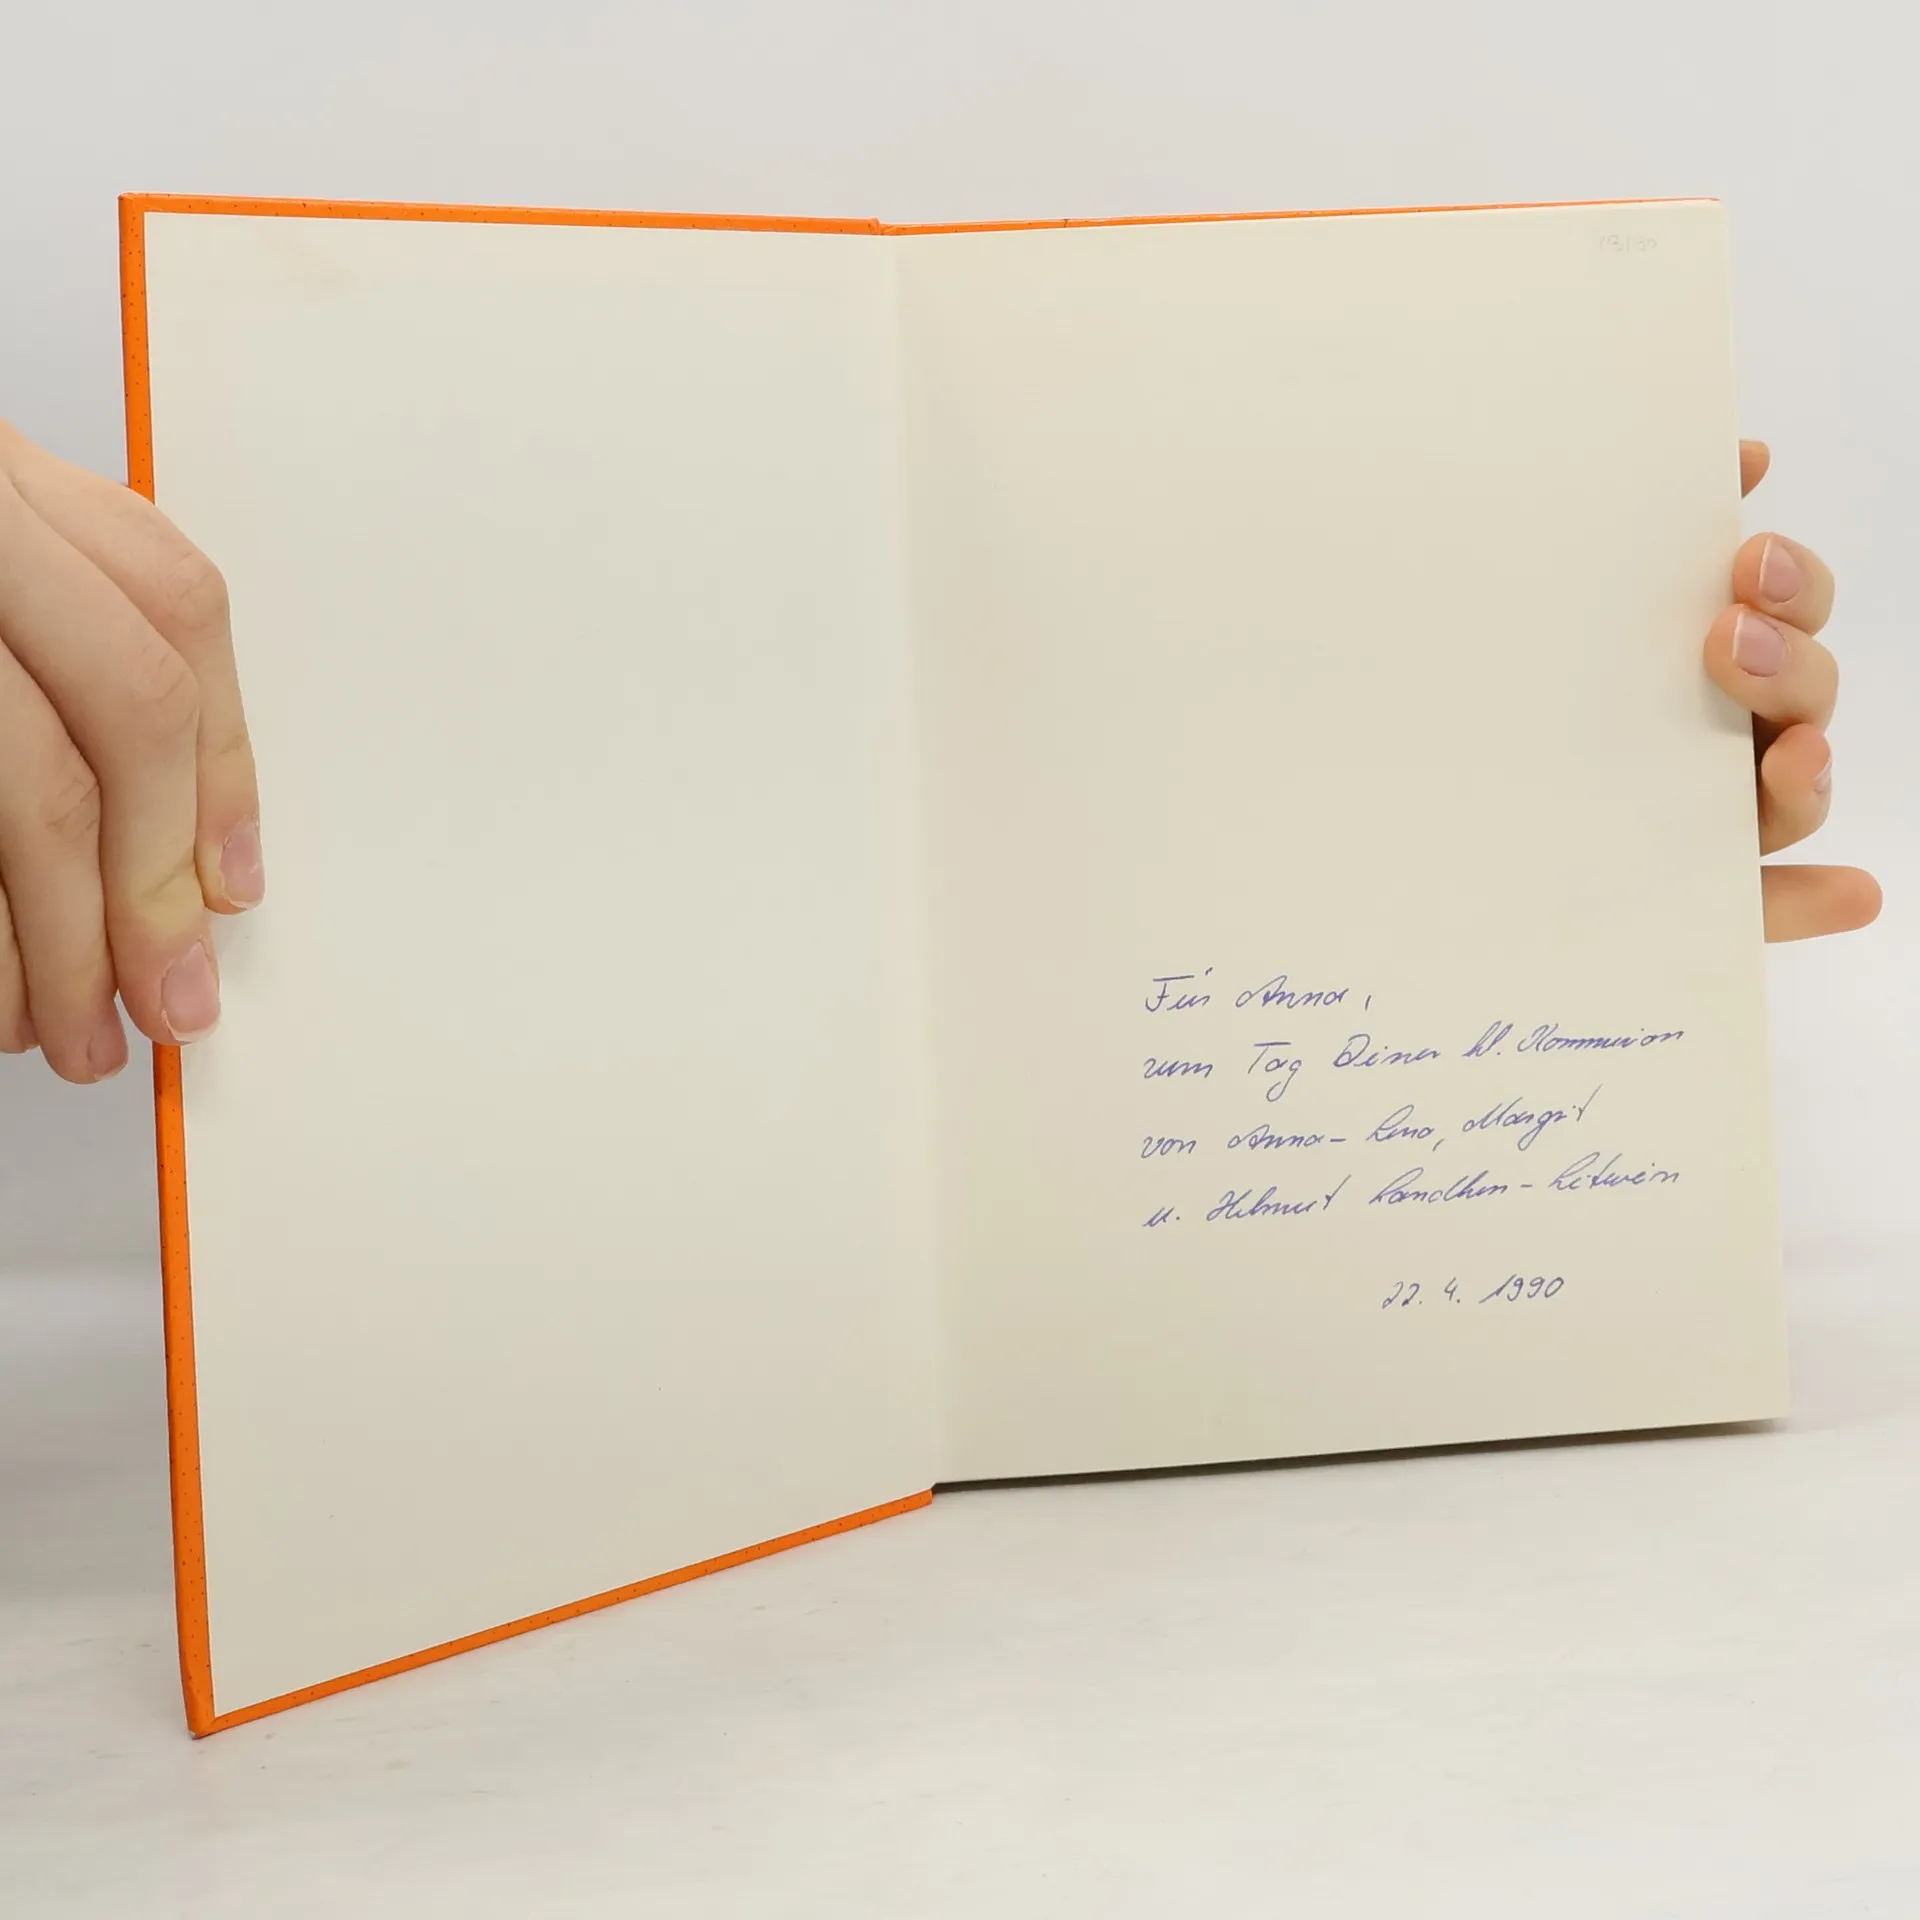 Für Anna,
zum Tag Deiner hl. Kommunion
von Anna-Lena, Margrit
u. Helmut
22. 4. 1990